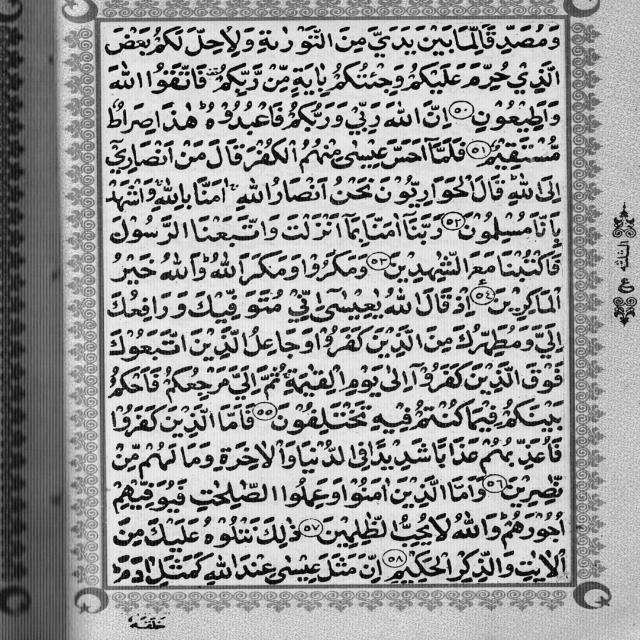 وَمُصَدِّقًا لِّمَا بَيْنَ يَدَيَّ مِنَ التَّوْرٰىةِ وَلِاُحِلَّ لَكُمْ بَعْضَ
الَّذِيْ حُرِّمَ عَلَيْكُمْ وَجِئْتُكُمْ بِاٰيَةٍ مِّنْ رَّبِّكُمْ فَاتَّقُوا اللّٰهَ
وَاَطِيْعُوْنِ ٥٠ اِنَّ اللّٰهَ رَبِّيْ وَرَبُّكُمْ فَاعْبُدُوْهُ هٰذَا صِرَاطٌ
مُّسْتَقِيْمٌ ٥١ فَلَمَّآ اَحَسَّ عِيْسٰى مِنْهُمُ الْكُفْرَ قَالَ مَنْ اَنْصَارِيْٓ
اِلَى اللّٰهِ قَالَ الْحَوَارِيُّوْنَ نَحْنُ اَنْصَارُ اللّٰهِ اٰمَنَّا بِاللّٰهِ وَاشْهَدْ
بِاَنَّا مُسْلِمُوْنَ ٥٢ رَبَّنَآ اٰمَنَّا بِمَآ اَنْزَلْتَ وَاتَّبَعْنَا الرَّسُوْلَ
فَاكْتُبْنَا مَعَ الشّٰهِدِيْنَ ٥٣ وَمَكَرُوْا وَمَكَرَ اللّٰهُ وَاللّٰهُ خَيْرُ
الْمَاكِرِيْنَ ٥٤ اِذْ قَالَ اللّٰهُ يٰعِيْسٰٓى اِنِّيْ مُتَوَفِّيْكَ وَرَافِعُكَ
اِلَيَّ وَمُطَهِّرُكَ مِنَ الَّذِيْنَ كَفَرُوْا وَجَاعِلُ الَّذِيْنَ اتَّبَعُوْكَ
فَوْقَ الَّذِيْنَ كَفَرُوْٓا اِلٰى يَوْمِ الْقِيٰمَةِ ثُمَّ اِلَيَّ مَرْجِعُكُمْ فَاَحْكُمُ
بَيْنَكُمْ فِيْمَا كُنْتُمْ فِيْهِ تَخْتَلِفُوْنَ ٥٥ فَاَمَّا الَّذِيْنَ كَفَرُوْا
فَاُعَذِّبُهُمْ عَذَابًا شَدِيْدًا فِى الدُّنْيَا وَالْاٰخِرَةِ وَمَا لَهُمْ مِّنْ
نّٰصِرِيْنَ ٥٦ وَاَمَّا الَّذِيْنَ اٰمَنُوْا وَعَمِلُوا الصّٰلِحٰتِ فَيُوَفِّيْهِمْ
اُجُوْرَهُمْ وَاللّٰهُ لَا يُحِبُّ الظّٰلِمِيْنَ ٥٧ ذٰلِكَ نَتْلُوْهُ عَلَيْكَ مِنَ
الْاٰيٰتِ وَالذِّكْرِ الْحَكِيْمِ ٥٨ اِنَّ مَثَلَ عِيْسٰى عِنْدَ اللّٰهِ كَمَثَلِ اٰدَمَ
خَلَقَهٗ